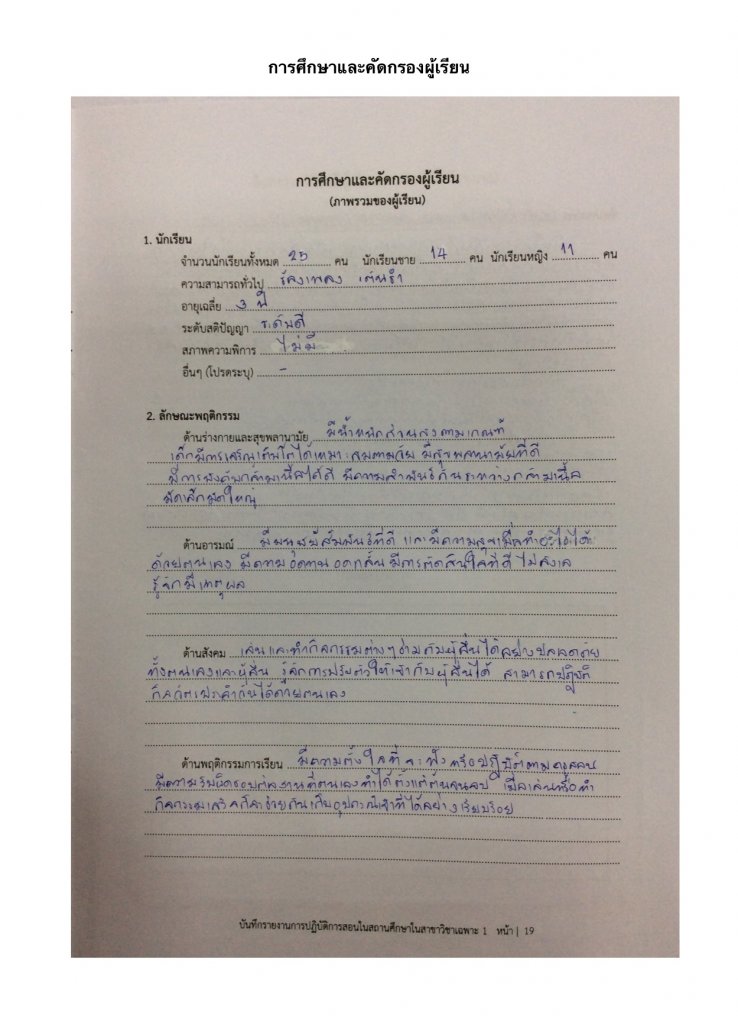 การศึกษาและคัดกรองผู้เรียน
การศึกษาและคัดกรองผู้เรียน
(ภาพรวมของผู้เรียน)
1. นักเรียน
จำนวนนักเรียนทั้งหมด 25 คน นักเรียนชาย 14 คน นักเรียนหญิง 11 คน
ความสามารถทั่วไป ร้องเพลง เต้นรำ
อายุเฉลี่ย 3 ปี
ระดับสติปัญญา ระดับดี
สภาพความพิการ ไม่มี
อื่นๆ (โปรดระบุ) -
2. ลักษณะพฤติกรรม
ด้านร่างกายและสุขพลานามัย มีน้ำหนักส่วนสูงตามเกณฑ์
เด็กมีการเจริญเติบโตได้เหมาะสมตามวัย มีสุขพลานามัยที่ดี
มีการบังคับกล้ามเนื้อได้ดี มีความสัมพันธ์กันระหว่างกล้ามเนื้อ
มัดเล็กมัดใหญ่
ด้านอารมณ์ มีมนุษย์สัมพันธ์ที่ดี และมีความสุขเมื่อทำอะไรได้
ด้วยตนเอง มีความอดทนอดกลั้น มีการตัดสินใจที่ดี ไม่ลังเล
รู้จักมีเหตุผล
ด้านสังคม เล่นและทำกิจกรรมต่างๆร่วมกับผู้อื่นได้อย่างปลอดภัย
ทั้งตนเองและผู้อื่น รู้จักการปรับตัวให้เข้ากับผู้อื่นได้ สามารถปฏิบัติ
กิจวัตรประจำวันได้ด้วยตนเอง
ด้านพฤติกรรมการเรียน มีความตั้งใจที่จะฟังหรือปฏิบัติตามครูสอน
มีความรับผิดชอบต่องานที่ตนเองทำได้ตั้งแต่ต้นจนจบ เมื่อเล่นหรือทำ
กิจกรรมเสร็จก็จะช่วยกันเก็บอุปกรณ์เข้าที่ได้อย่างเรียบร้อย
บันทึกรายงานการปฏิบัติการสอนในสถานศึกษาในสาขาวิชาเฉพาะ 1 หน้า | 19